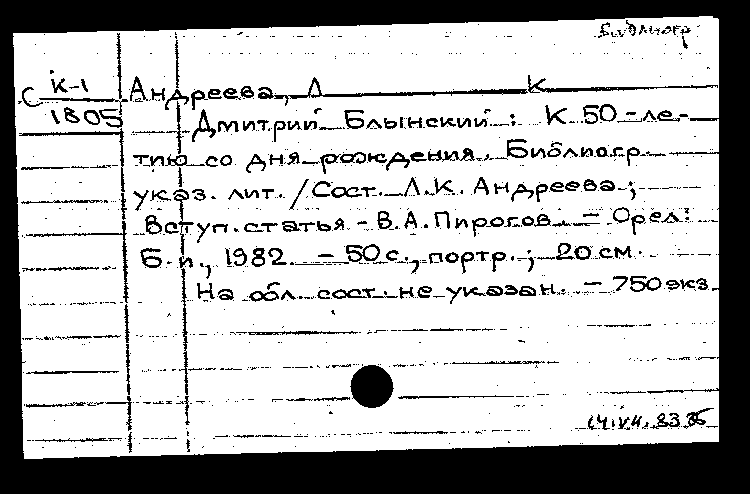 Библиогр.
С К-1 Андреева, Л К
1805 Дмитрий Блынский: К 50-ле-
тию со дня рождения. Библиогр.
указ. лит. / Сост. Л.К. Андреева;
Вступ. статья - В.А. Пирогов. - Орел:
Б.и., 1982. - 50 с., портр.; 20 см.
На обл. сост. не указан. - 750 экз.
83